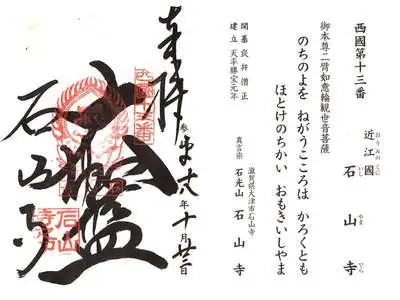 西國第十三番
おうみのくに
近江國
いし やま でら
石山寺
御本尊二臂如意輪観世音菩薩
のちのよを ねがうこころは かろくとも
ほとけのちかい おもきいしやま
開基 良弁僧正
建立 天平勝宝元年
滋賀県大津市石山寺
真言宗 石光山 石山寺
奉拝
年十月
西国十三番
石山寺
石山寺